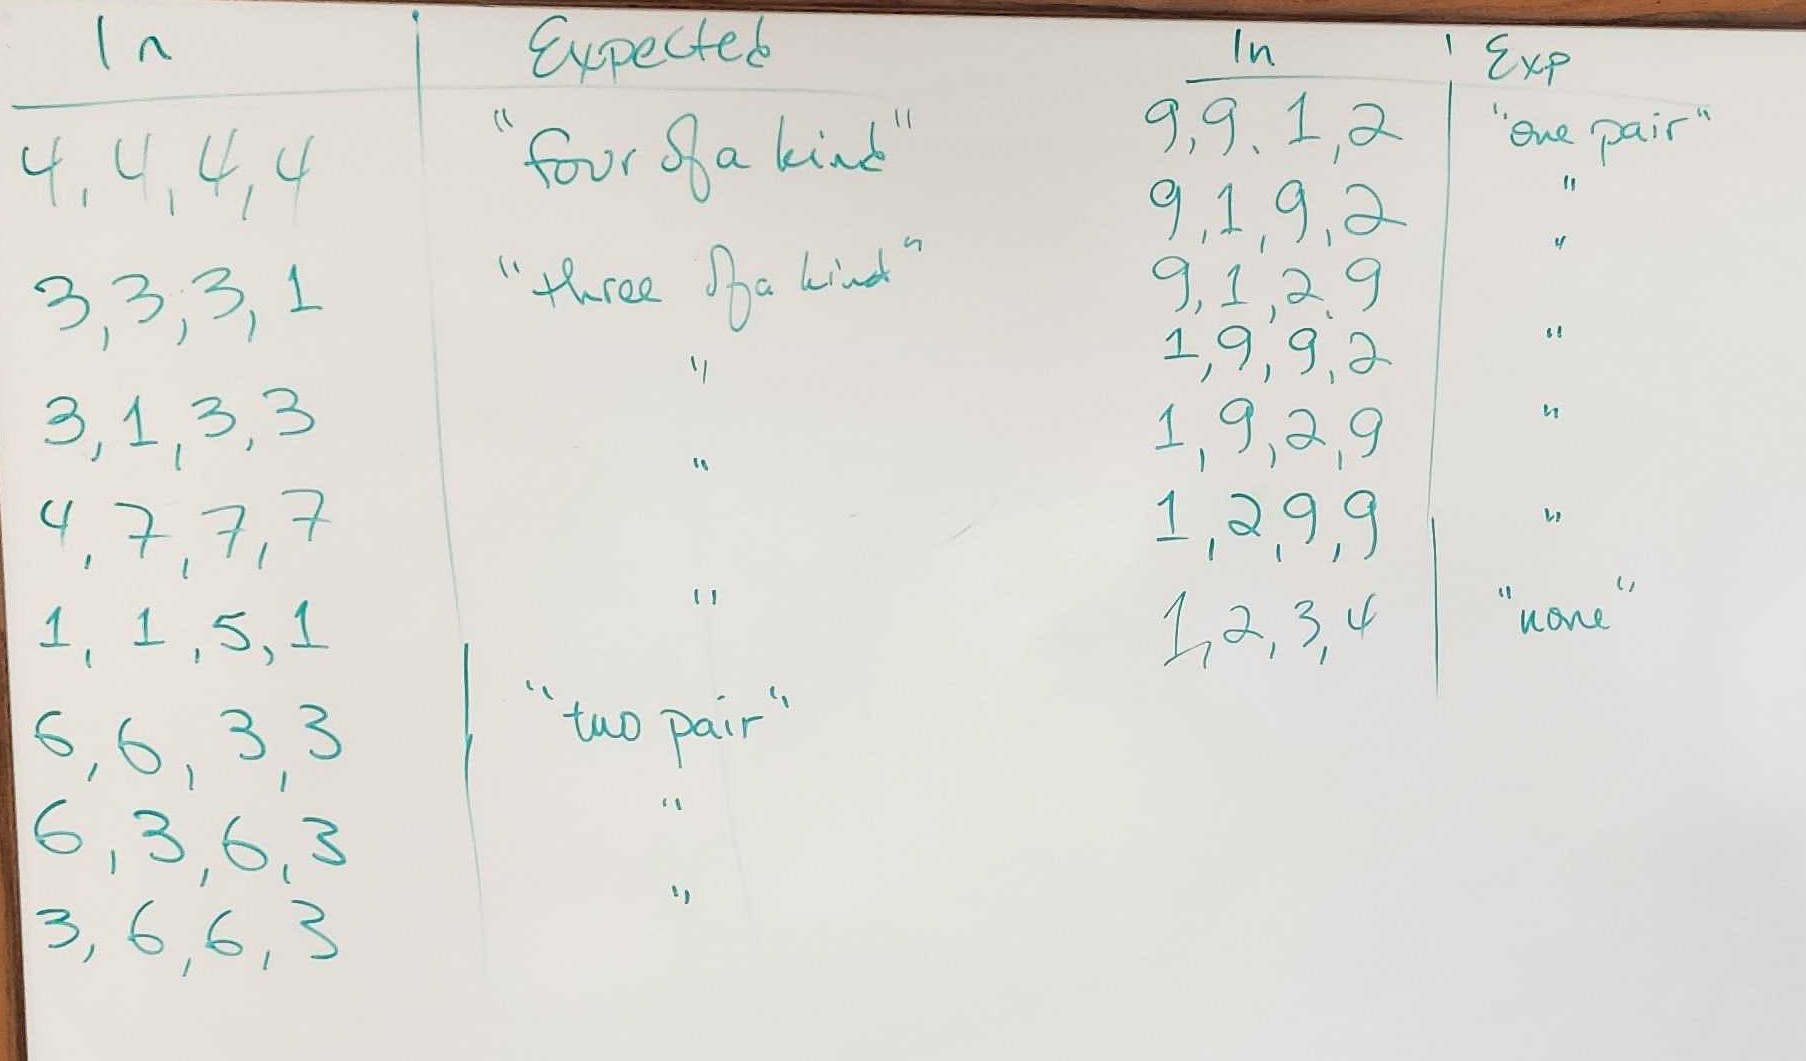 In Expected
4, 4, 4, 4 "four of a kind"
3, 3, 3, 1 "three of a kind"
3, 1, 3, 3 "
4, 7, 7, 7 "
1, 1, 5, 1 "
6, 6, 3, 3 "two pair"
6, 3, 6, 3 "
3, 6, 6, 3 "
In Exp
9, 9. 1, 2 "one pair"
9, 1, 9, 2 "
9, 1, 2, 9 "
1, 9, 9, 2 "
1, 9, 2, 9 "
1, 2, 9, 9 "
1, 2, 3, 4 "none"